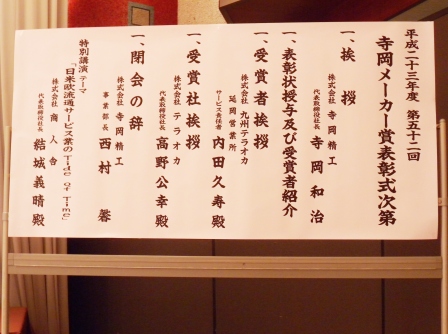 平成二十三年度 第五十二回
寺岡メーカー賞表彰式次第
一、挨拶
株式会社 寺岡精工
代表取締役社長 寺岡和治
一、表彰状授与及び受賞者紹介
一、受賞者挨拶
株式会社 九州テラオカ
延岡営業所
サービス責任者 内田久寿殿
一、受賞社挨拶
株式会社 テラオカ
代表取締役社長 高野公幸殿
一、閉会の辞
株式会社 寺岡精工
事業部長 西村馨
特別講演 テーマ
「日米欧流通サービス業のTide of Time」
株式会社 商人舎
代表取締役社長 結城義晴殿